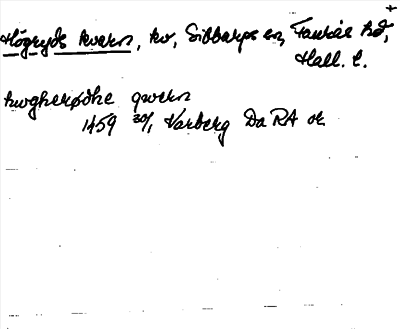 Högryds kvarn, kv, Sibbarps sn, Faurås hd,
Hall. l.
hwgherødhe qwern
1459 30/1 Varberg Da RA or